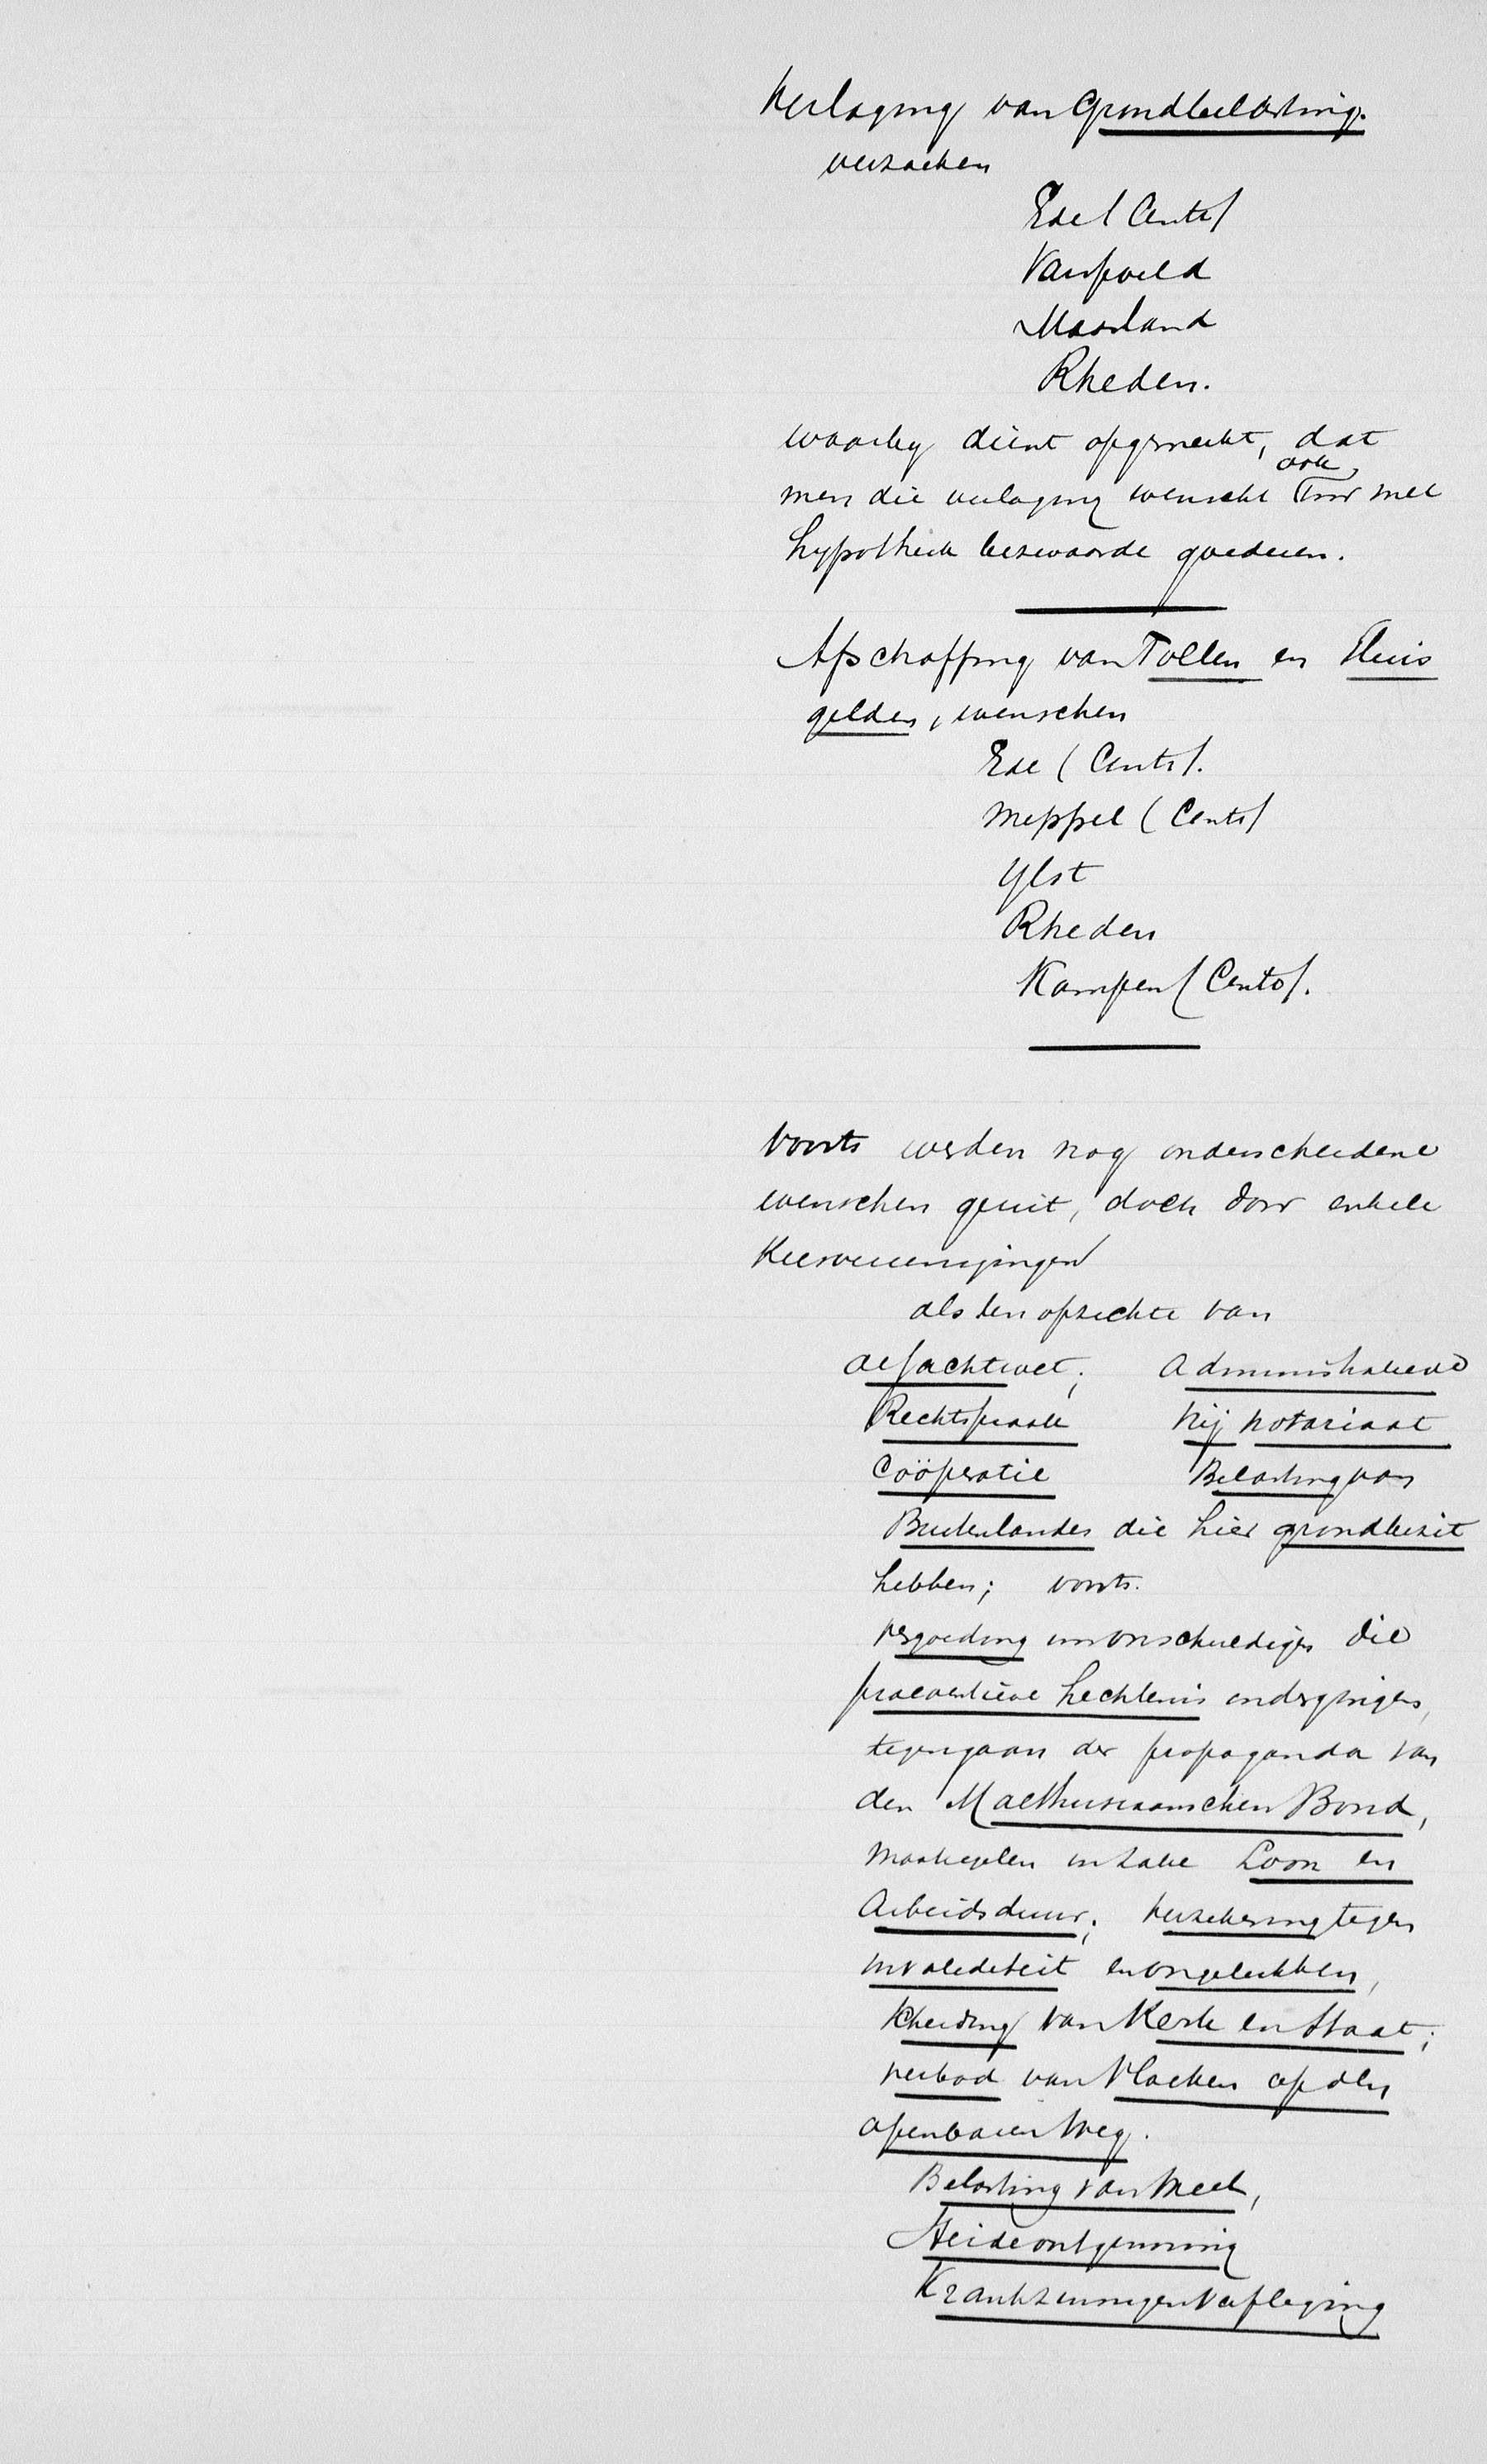 Verlaging van Grondbelasting.
verzoeken
Ede (Centr)
Varsseveld
Maasland
Rheden.
waarby dient opgemerkt, dat
men die verlaging wenscht ook voor met
hypotheek bezwaarde goederen.
Afschaffing van Tollen en Sluis
gelden, wenschen
Ede (Centr).
Meppel (Centr)
Ylst
Rheden
Kampen (Centr).
Voorts werden nog onderscheidene
wenschen geuit, doch door enkele
Kiesvereenigingen
als ten opzichte van
de Jachtwet; Administratieve
Rechtspraak Vrij notariaat
Coöperatie Belasting van
Buitenlanders die hier grondbezit
hebben; voorts.
vergoeding aan onschuldigen die
praeventieve hechtenis ondergingen,
tegengaan der propaganda van
den Malthusiaanschen Bond,
Maatregelen inzake Loon en
Arbeidsduur; verzekering tegen
invaliditeit en ongelukken,
scheiding van Kerk en Staat;
verbod van Vloeken op den
openbaren weg.
Belasting van Meel,
Heideontginning
Krankzinnigenverpleging